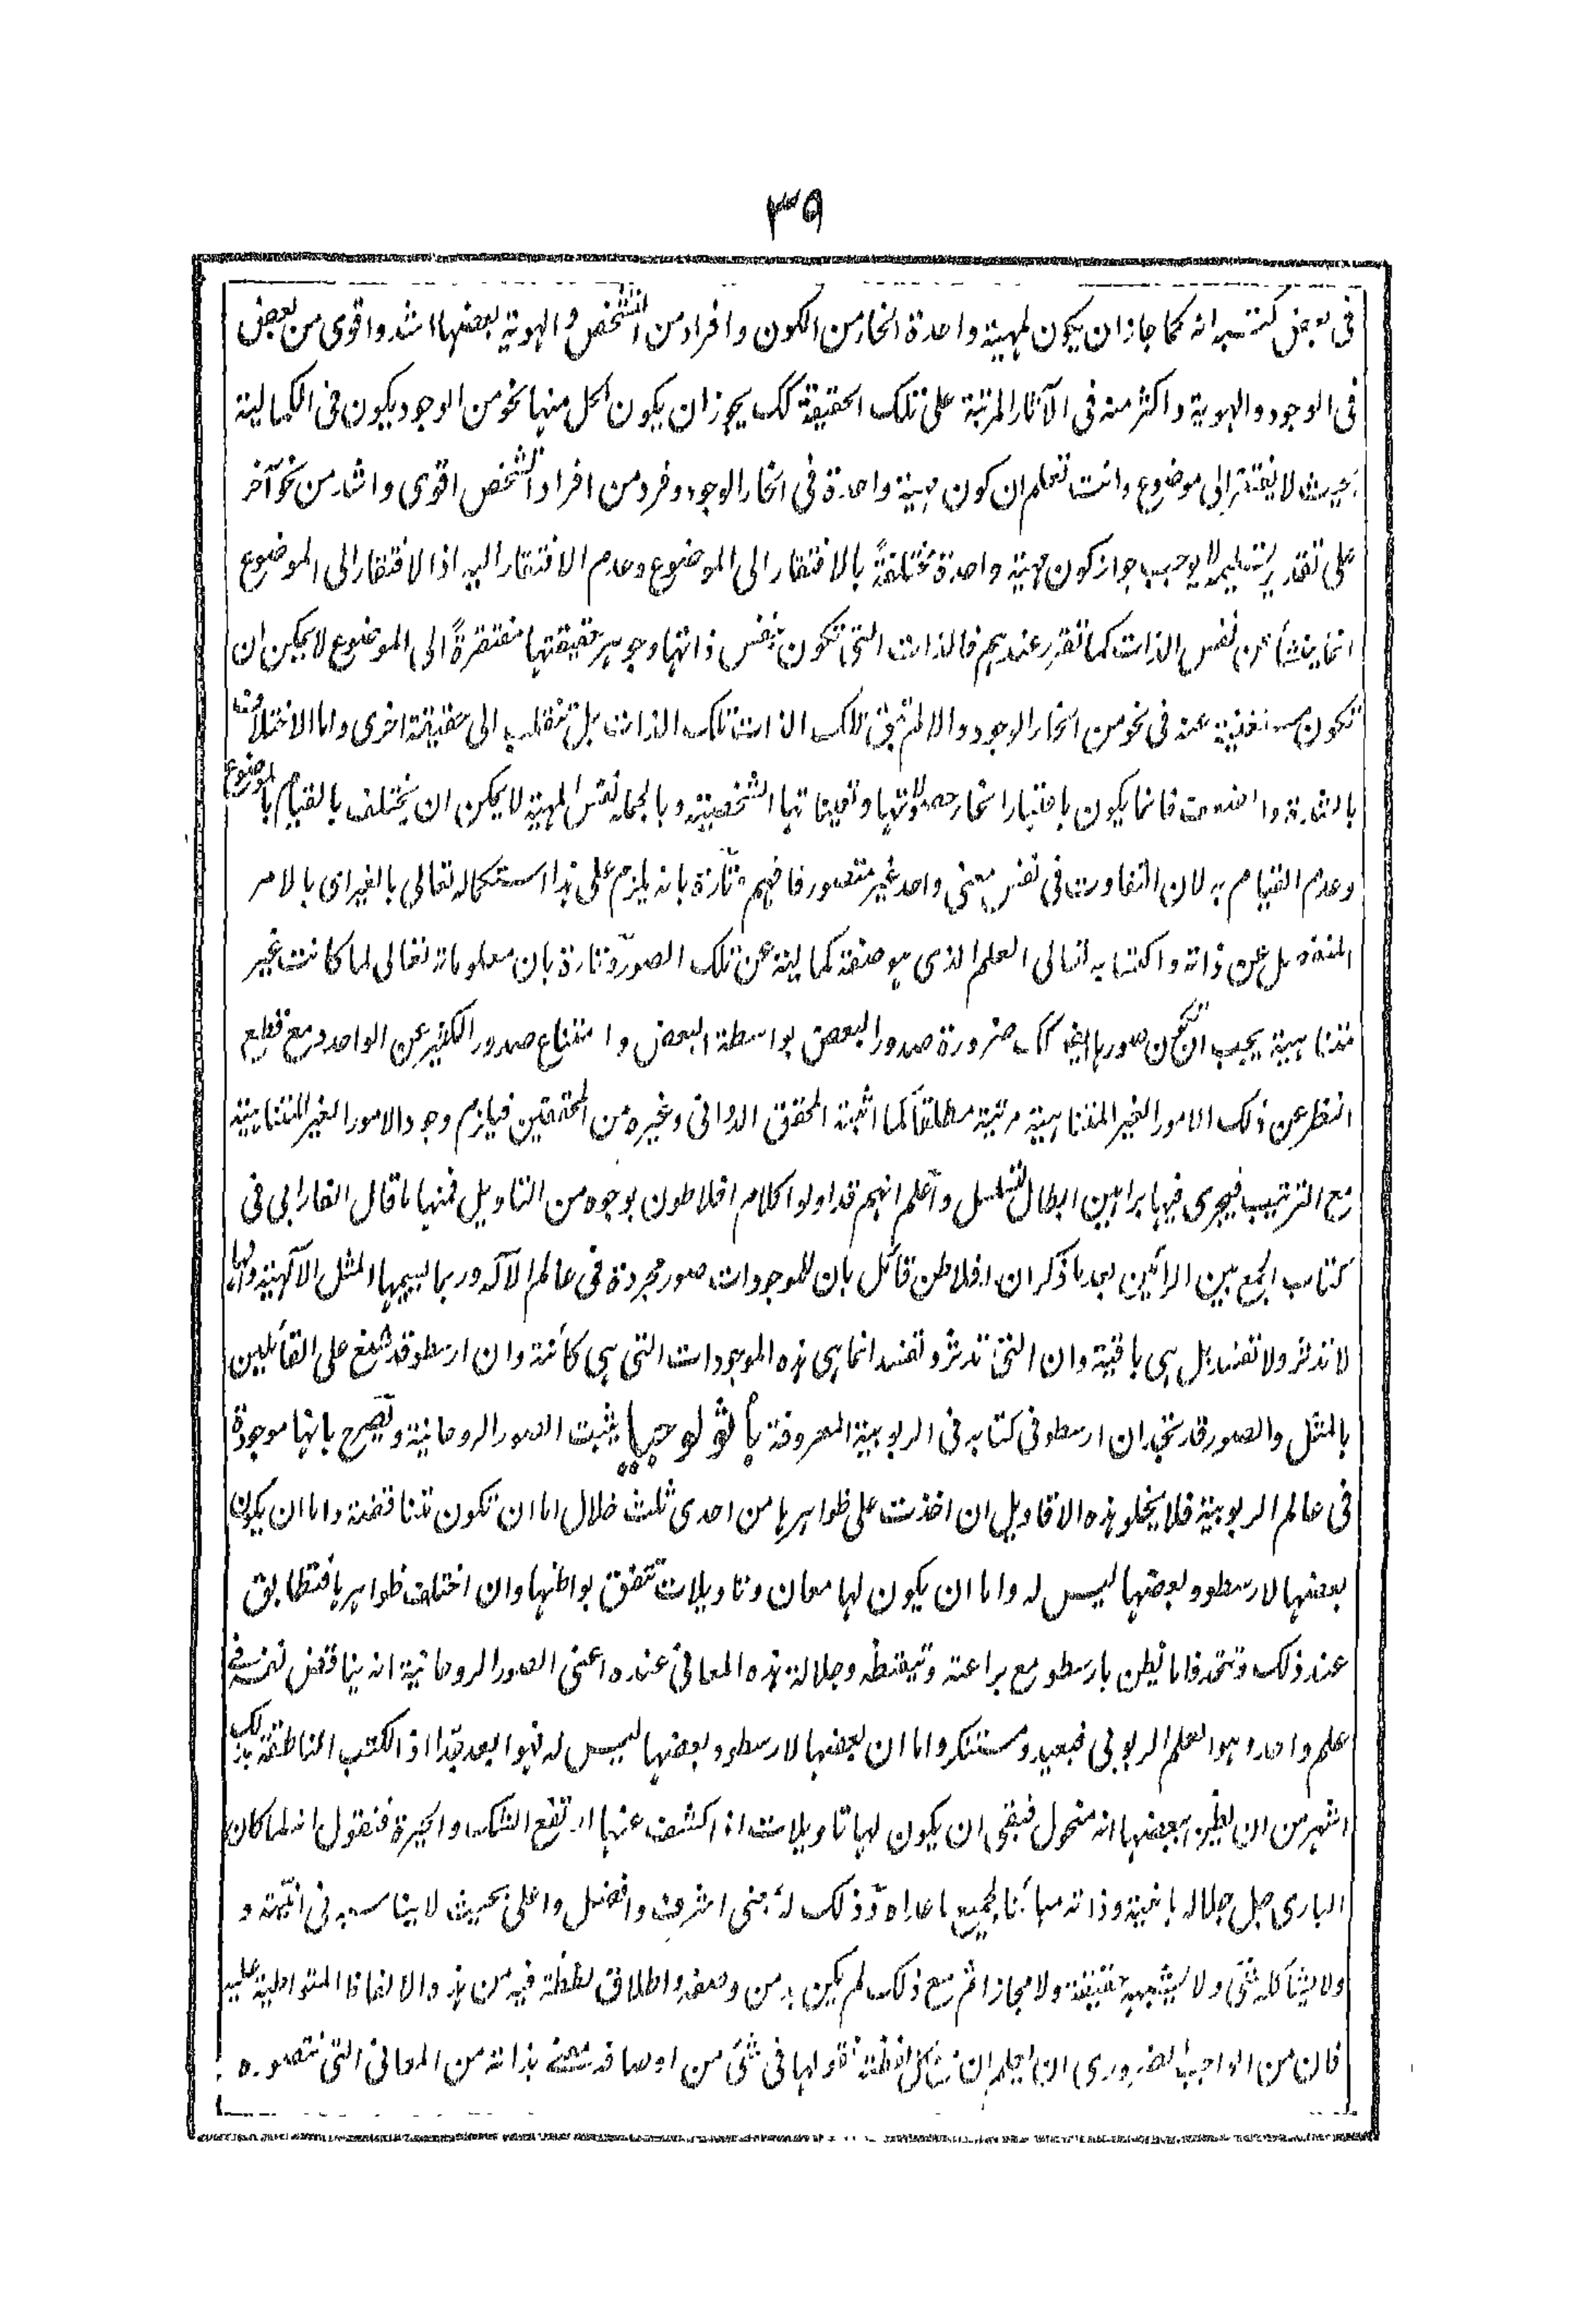 ٣٩
فى بعض كتبه انه كما جاز ان يكون لمهية واحدة انحاء من الكون وافراد من التشخص والهوية بعضها اشد واقوى من بعض
فى الوجود والهوية واكثر منه فى الآثار المرتبة على تلك الحقيقة كك يجوز ان يكون لكل منها نحو من الوجود يكون فى الكمالية
بحيث لا يفتقر الى موضوع وانت تعلم ان كون مهية واحدة فى انحاء الوجود وفرد من افراد التشخص اقوى واشد من نحو آخر
على تقدير تسليمه لا يوجب جواز كون مهية واحدة مختلفةً بالافتقار الى الموضوع وعدم الافتقار اليه اذ الافتقار الى الموضوع
انما ينشأ عن نفس الذات كما تقرر عندهم فالذات التى تكون بنفس ذاتها وجوهر حقيقتها مفتقرةً الى الموضوع لا يمكن ان
تكون مستغنية عنه فى نحو من انحاء الوجود والا لم تبق تلك الذات تلك الذات بل تنقلب الى حقيقة اخرى واما الاختلاف
بالشدة والضعف فانما يكون باعتبار انحاء حصولاتها وتعيناتها الشخصية وبالجملة نفس المهية لا يمكن ان يختلف بالقيام بالموضوع
وعدم القيام به لان التفاوت فى نفس معنى واحد غير متصور فافهم وتارة بانه يلزم على هذا استكماله تعالى بالغير اى بالامر
المنفصل عن ذاته واكتسابه تعالى العلم الذى هو صفة كمالية عن تلك الصور وتارة بان معلوماته تعالى لما كانت غير
متناهية يجب ان تكون صورها ايضا كك ضرورة صدور البعض بواسطة البعض وامتناع صدور الكثير عن الواحد ومع قطع
النظر عن ذلك الامور الغير المتناهية مرتبة مطلقاً كما اثبته المحقق الدوانى وغيره من المحققين فيلزم وجود الامور الغير المتناهية
مع الترتيب فيجرى فيها براهين ابطال التسلسل واعلم انهم قد اولوا كلام افلاطون بوجوه من التاويل فمنها ما قال الفارابى فى
كتاب الجمع بين الرائين بعد ما ذكر ان افلاطن قائل بان للموجودات صور مجردة فى عالم الآله وربما يسميها المثل الآلهية وانها
لا تدثر ولا تفسد بل هى باقية وان التى تدثر وتفسد انما هى هذه الموجودات التى هى كائنة وان ارسطو قد شنع على القائلين
بالمثل والصور قد نجد ان ارسطو فى كتابه فى الربوبية المعروفة باثولوجيا يثبت الصور الروحانية ويصرح بانها موجودة
فى عالم الربوبية فلا يخلو هذه الاقاويل ان اخذت على ظواهرها من احدى ثلث خلال اما ان تكون تناقضة واما ان يكون
بعضها لارسطو وبعضها ليس له واما ان يكون لها معان وتاويلات تتفق بواطنها وان اختلف ظواهرها فتطابق
عند ذلك وتتحد فاما يظن بارسطو مع براعته وتيقظه وجلالة هذه المعانى عنده اعنى الصور الروحانية انه يناقض نفسه فى
علم واحد وهو العلم الربوبى فبعيد ومستنكر واما ان بعضها لارسطو وبعضها ليس له فهو ابعد جدا اذ الكتب الناطقة بذلك
اشهر من ان يظن ببعضها انه منحول فبقى ان يكون لها تاويلات اذا كشف عنها ارتفع الشك والحيرة فنقول انه لما كان
البارى جل جلاله بانيته وذاته مبائنا لجميع ما عداه وذلك لمعنى اشرف وافضل واعلى بحيث لا يناسبه فى انيته و
ولا يشاكله شئ ولا يشبهه حقيقة ولا مجازا ثم مع ذلك لم يكن بد من وصفه واطلاق لفظة فيه من هذه الالفاظ المتواطية عليه
فان من الواجب الضرورى ان يعلم ان مع كل لفظة نقولها فى شئ من اوصافه معنى بذاته من المعانى التى نتصوره